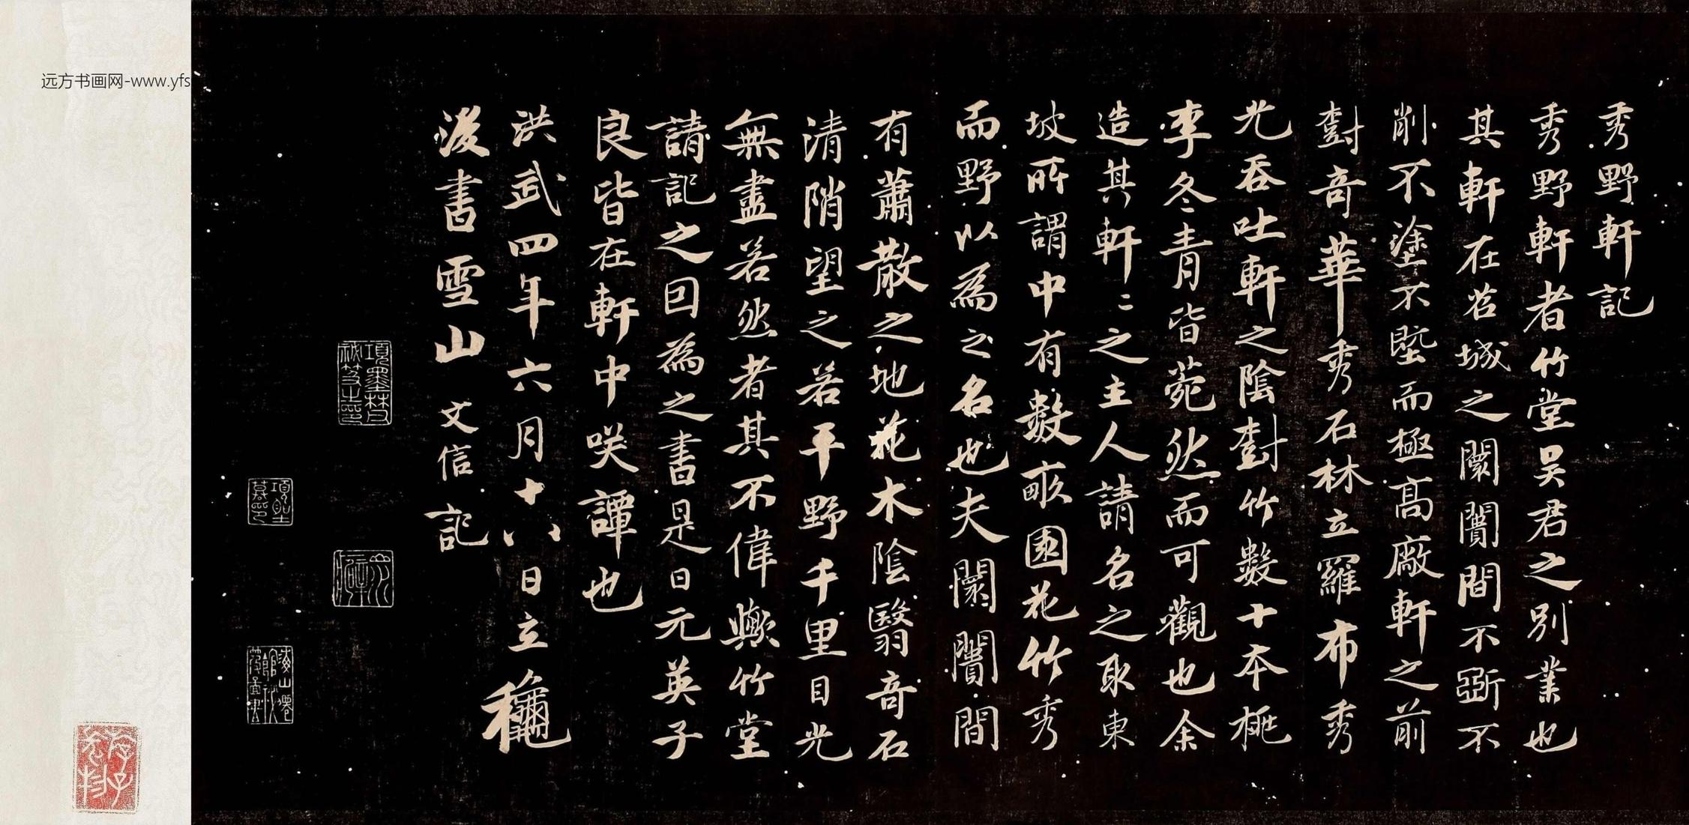 秀野軒記
秀野軒者竹堂吴君之别業也
其軒在苕城之闤闠間不斲不
削不塗不塈而極高廠軒之前
對奇華秀石林立羅布秀
光吞吐軒之陰對竹數十本桃
李冬青皆菀然而可觀也余
造其軒〻之主人請名之取東
坡所謂中有數畝園花竹秀
而野以為之名也夫闤闠間
有蕭散之地花木陰翳奇石
清陗望之若平野千里目光
無盡若然者其不偉歟竹堂
請記之回為之書是日元英子
良皆在軒中咲譚也
洪武四年六月十八日立穐
後書雪山文信記
远方书画网-www.yfs